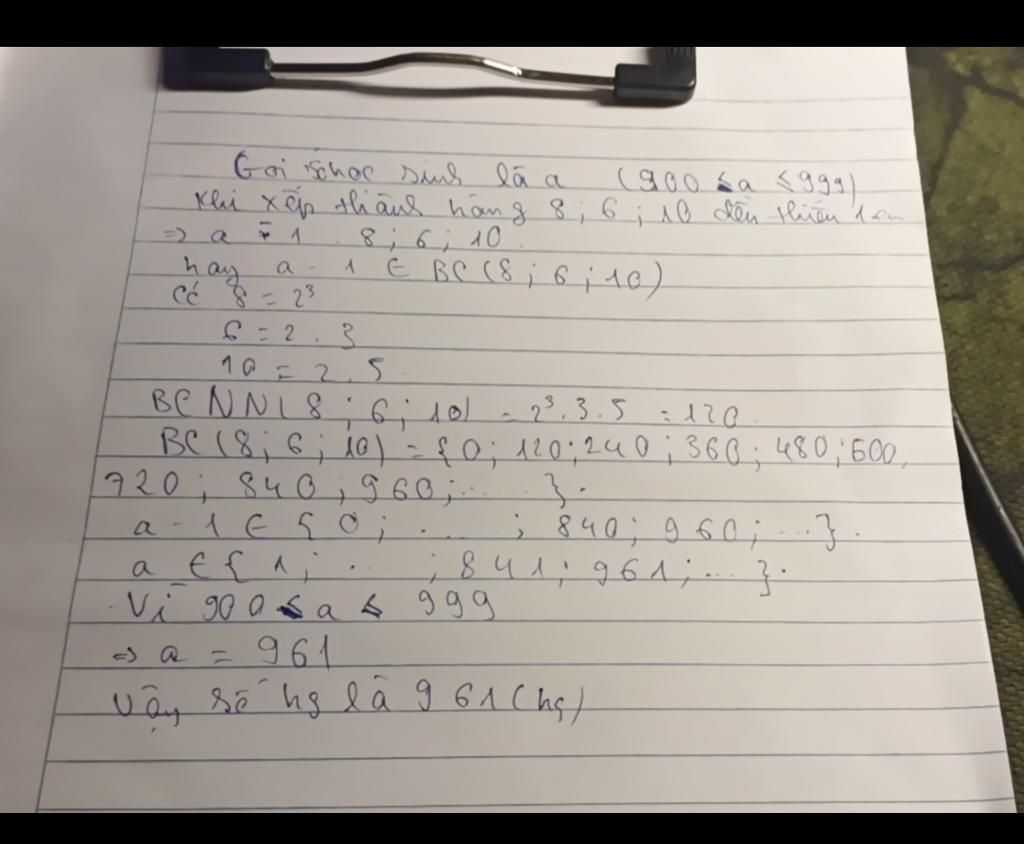 Gọi số học sinh là a (900 ≤ a ≤ 999)
Khi xếp thành hàng 8 ; 6 ; 10 đều thiếu 1 em
=> a - 1 : 8 ; 6 ; 10
hay a - 1 ∈ BC(8 ; 6 ; 10)
Có 8 = 2³
6 = 2 . 3
10 = 2 . 5
BCNN(8 ; 6 ; 10) = 2³.3.5 = 120
BC(8 ; 6 ; 10) = {0 ; 120 ; 240 ; 360 ; 480 ; 600,
720 ; 840 ; 960 ; .... }.
a - 1 ∈ { 0 ; .... ; 840 ; 960 ; ...}.
a ∈ { 1 ; .... ; 841 ; 961 ; ... }.
Vì 900 ≤ a ≤ 999
=> a = 961
Vậy số hs là 961 (hs)